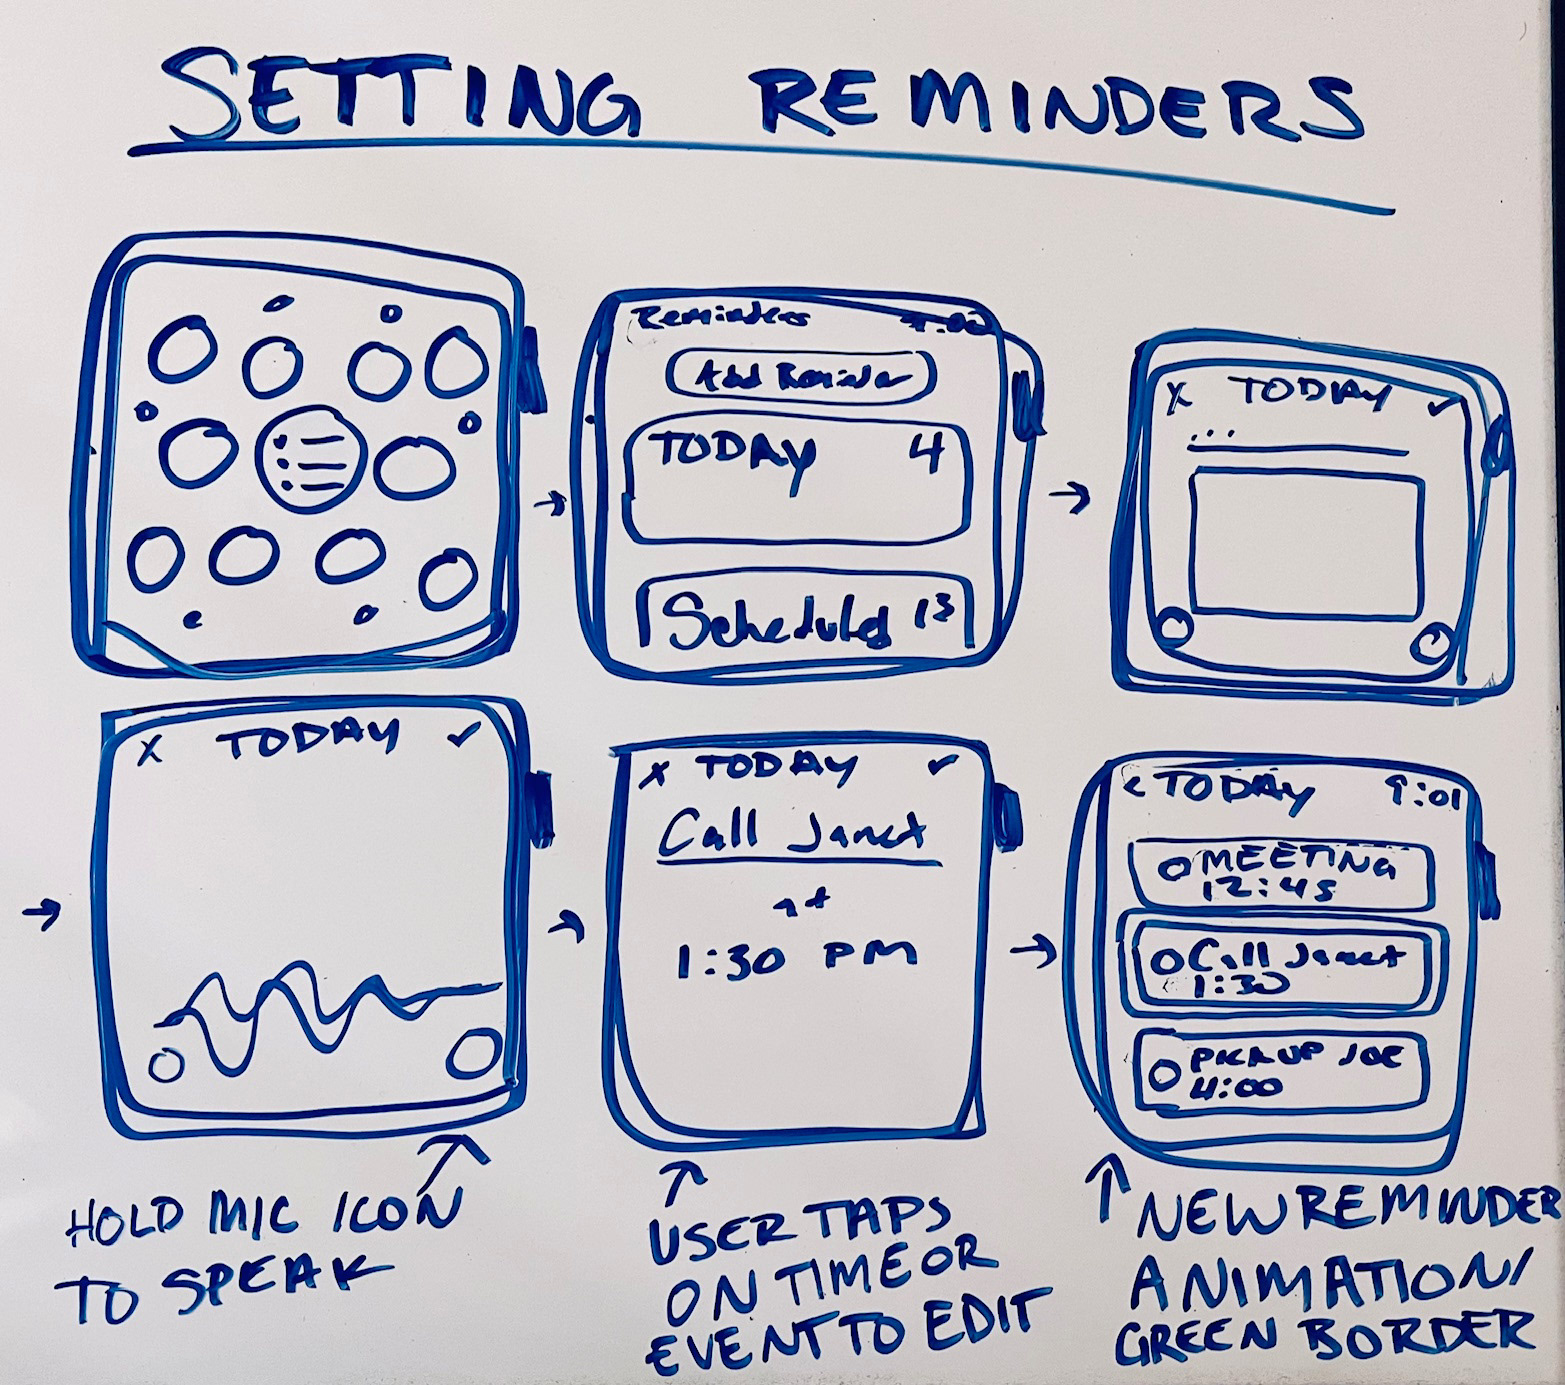 SETTING REMINDERS
Reminders
Add Reminder
TODAY 4
Scheduled 13
X TODAY ✓
...
X TODAY ✓
HOLD MIC ICON
TO SPEAK
X TODAY ✓
Call Janet
at
1:30 PM
USER TAPS
ON TIME OR
EVENT TO EDIT
< TODAY 9:01
MEETING
12:45
Call Janet
1:30
PICK UP JOE
4:00
NEW REMINDER
ANIMATION/
GREEN BORDER